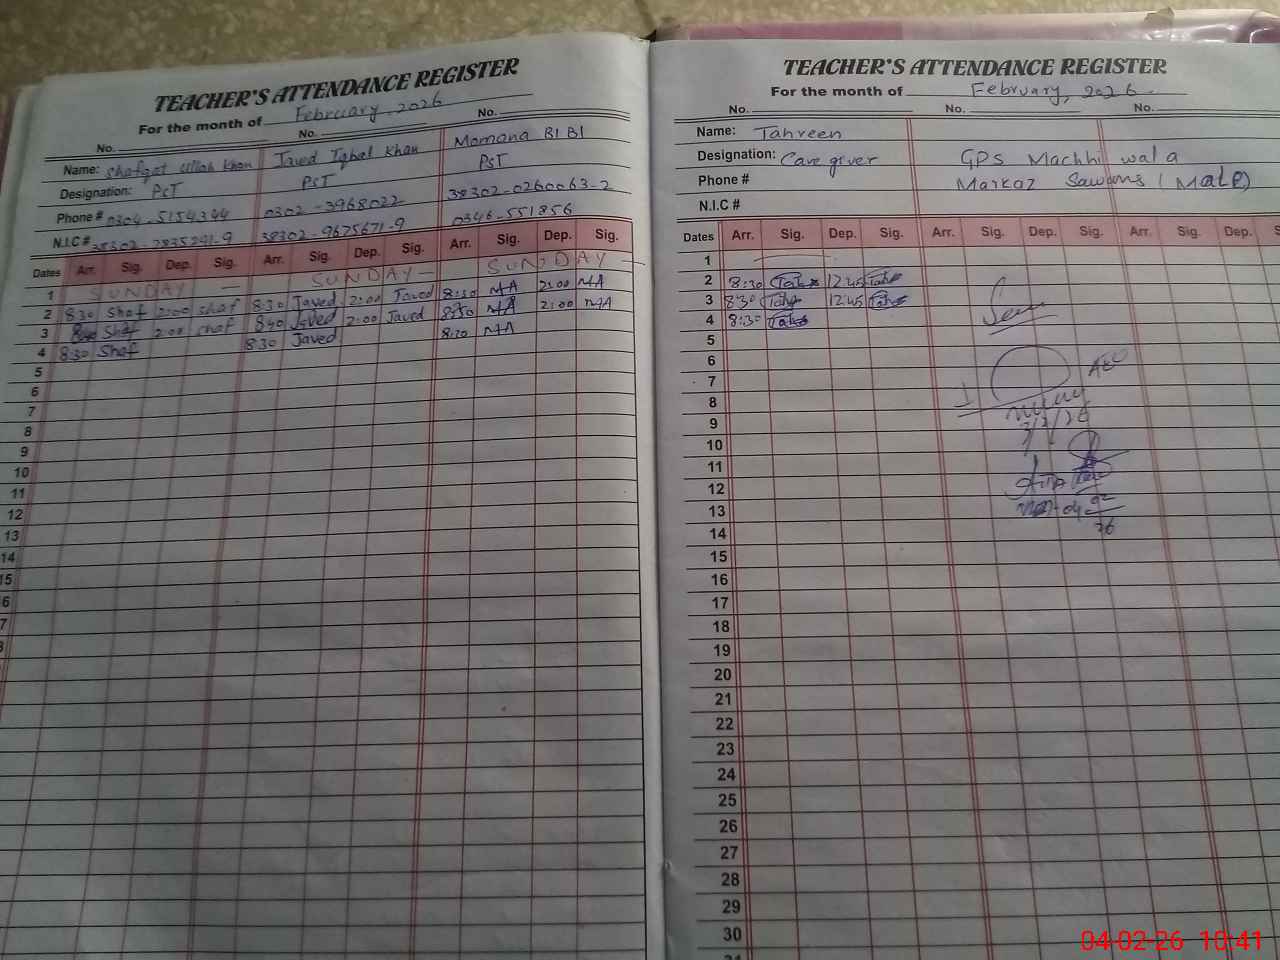 TEACHER'S ATTENDANCE REGISTER
For the month of February. 2026
No. No. No.
Name: Shafqat Ullah Khan Javed Iqbal Khan Momana BIBI
Designation: PST PST PST
Phone # 0304-5154344 0302-3968022 38302-0260063-2
N.I.C # 38302-7835291-9 38302-9675671-9 0346-551856
Dates Arr. Sig. Dep. Sig. Arr. Sig. Dep. Sig. Arr. Sig. Dep. Sig.
1 SUNDAY — SUNDAY — SUNDAY —
2 8:30 Shaf 2:00 Shaf 8:30 Javed 2:00 Javed 8:30 MA 2:00 MA
3 Shaf 2:00 Shaf Javed 2:00 Javed MA 2:00 MA
4 8:30 Shaf 8:30 Javed MA
5
6
7
8
9
10
11
12
13
14
15
6
7
TEACHER'S ATTENDANCE REGISTER
For the month of February, 2026.
No. No. No.
Name: Tahreen
Designation: Care giver GPS Machhi wala
Phone # Markaz (Male)
N.I.C #
Dates Arr. Sig. Dep. Sig. Arr. Sig. Dep. Sig. Arr. Sig. Dep.
1
2 8:30 Tah 12:45 Tah
3 8:30 Tah 12:45 Tah
4 8:30 Tah
5
6
7
8
9
10
11
12
13
14
15
16
17
18
19
20
21
22
23
24
25
26
27
28
29
30
AEO
3/2/26
04-02-26 10:41